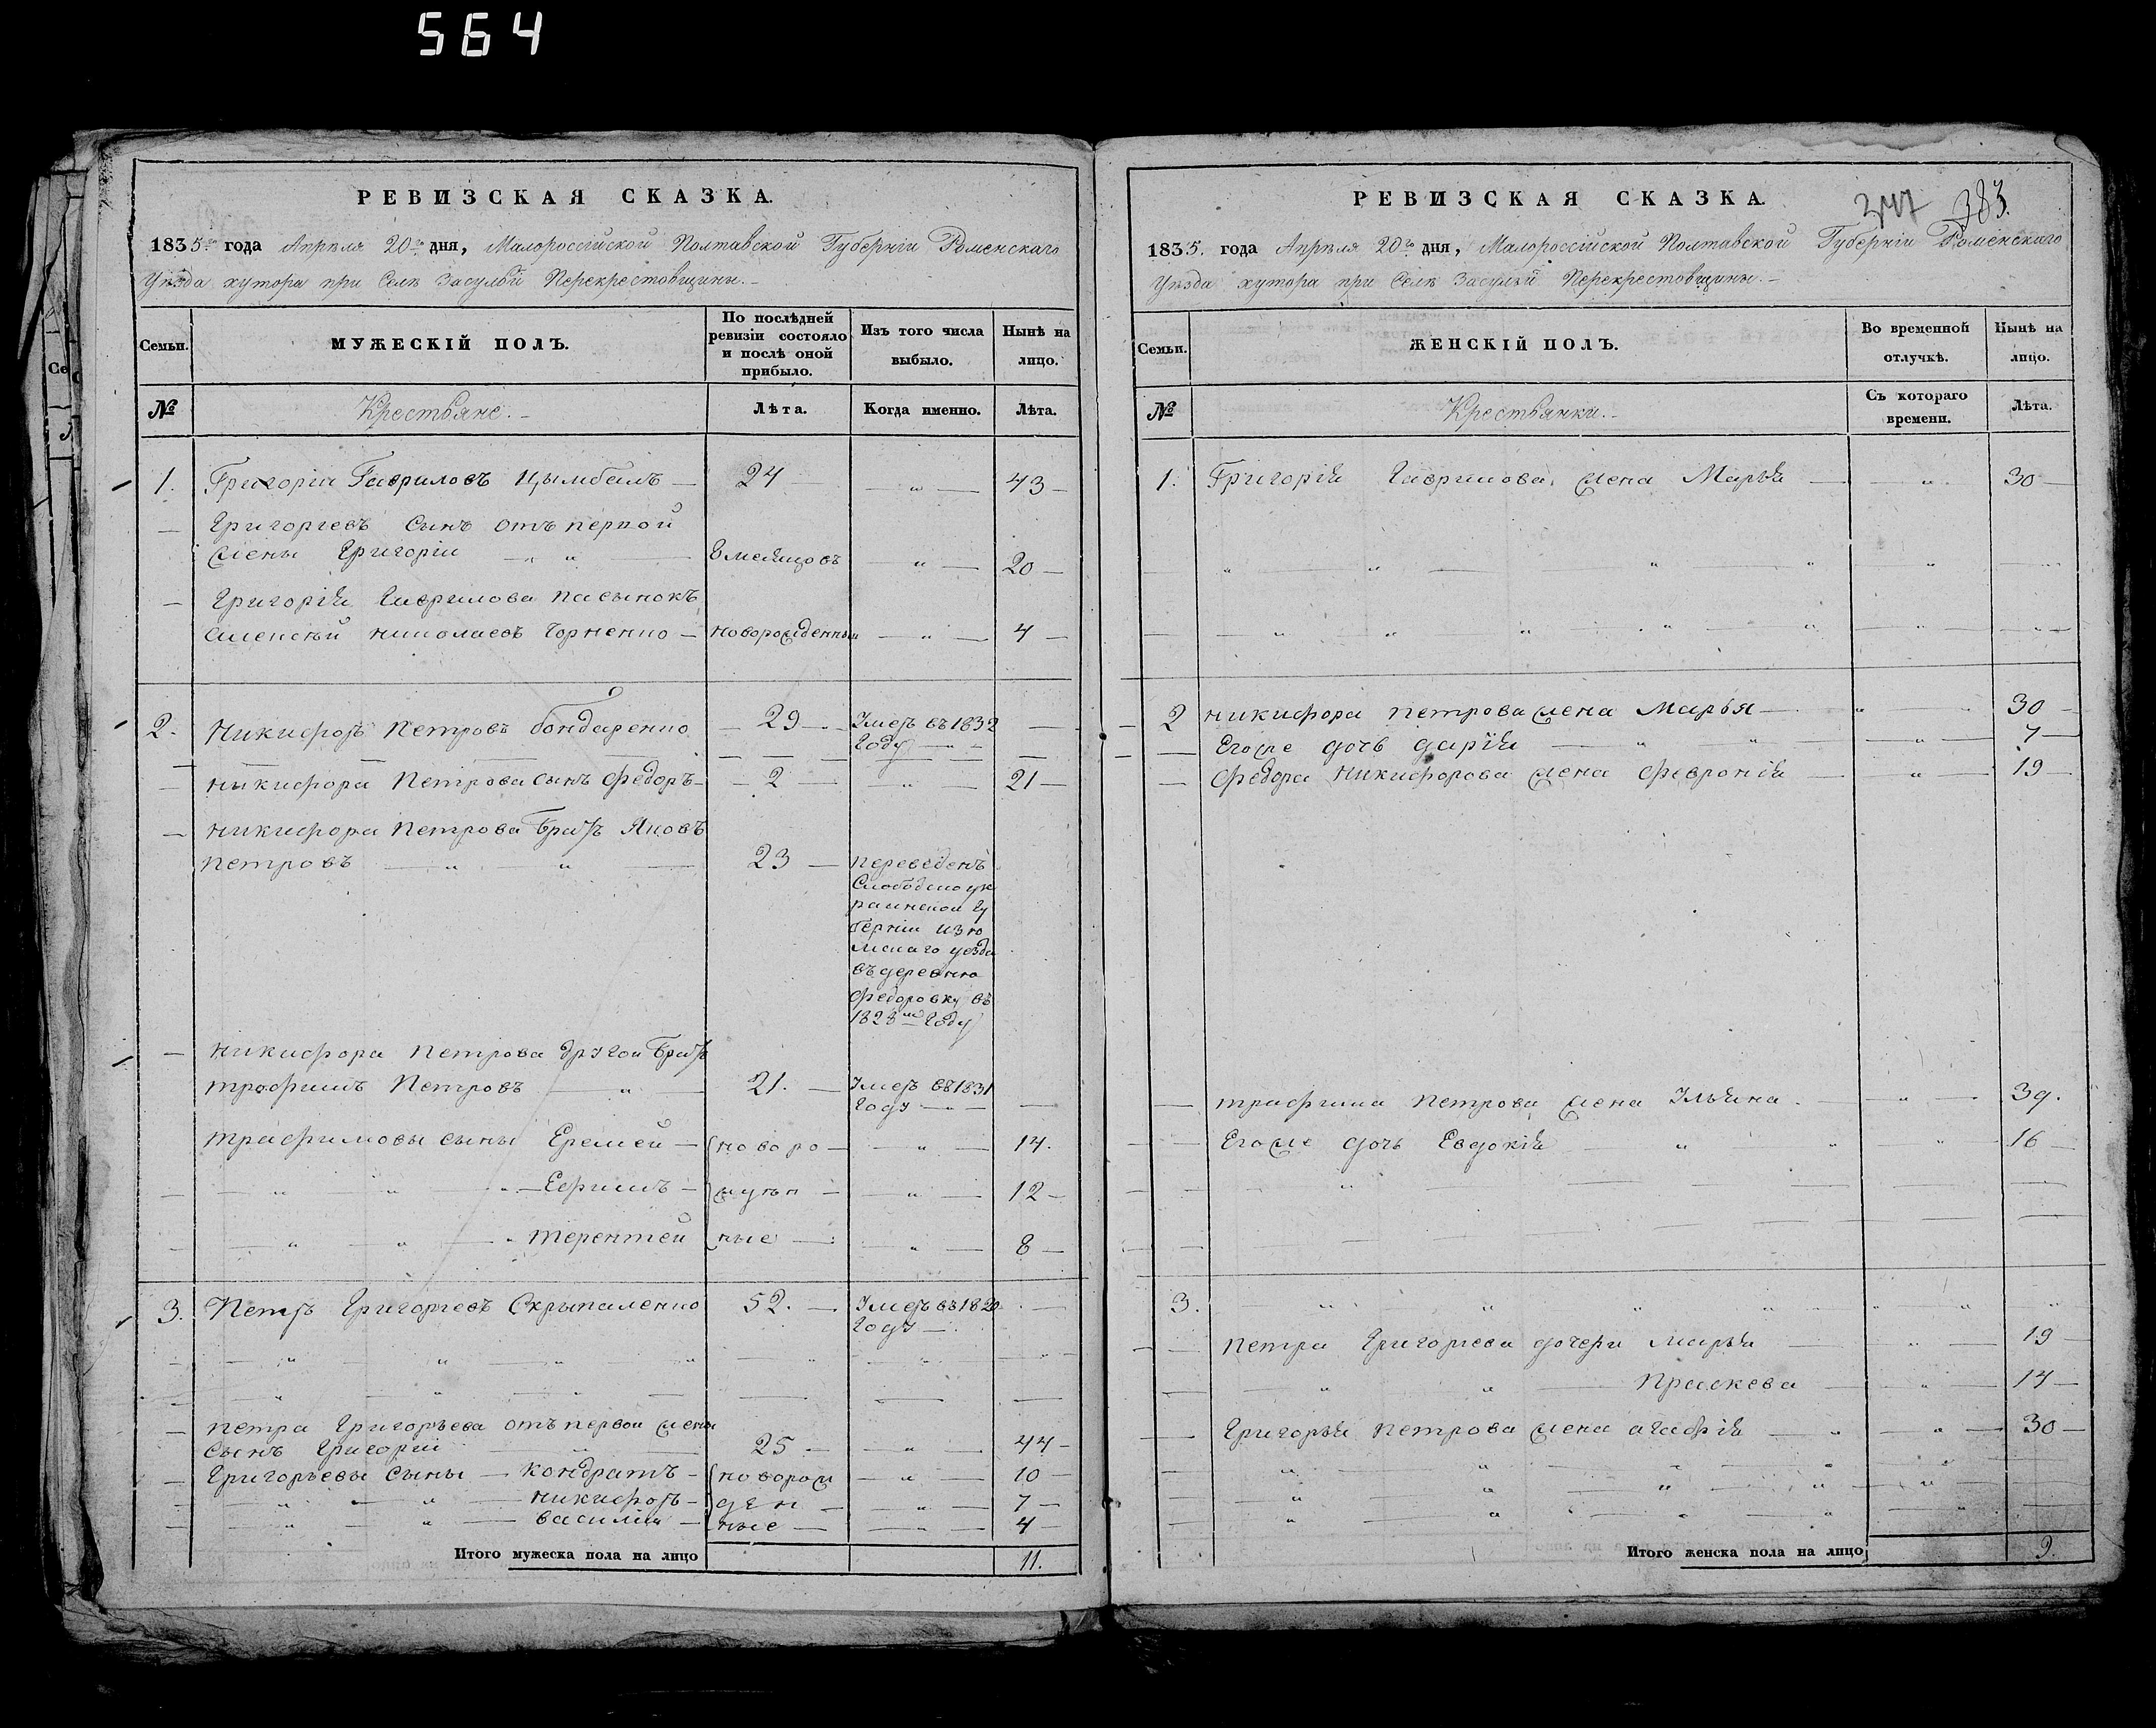 564
РЕВИЗСКАЯ СКАЗКА.
1835го года Апрѣля 20го дня, Малороссійской Полтавской Губерніи Роменскаго
Уѣзда хутора при Селѣ Засульи Перекрестовщины.
Семьи.
МУЖЕСКІЙ ПОЛЪ.
По послѣдней ревизіи состояло и послѣ оной прибыло.
Изъ того числа выбыло.
Нынѣ на лицо.
№
Крестьяне.
Лѣта.
Когда именно.
Лѣта.
1. Григорій Гавриловъ Цымбалъ — 24 — " — 43 —
— Григорьевъ Сынъ отъ первой
жены Григорій — " " — 8 месяцовъ — " — 20 —
— Григорія Гаврилова пасынокъ
николаевъ — новорожденный — " — 4 —
2. Никифоръ Петровъ бондаренко — 29 — Умеръ въ 1832
Году —
— никифора Петрова сынъ Федоръ — 2 — " — 21 —
— никифора Петрова Братъ Яковъ
Петровъ — " " — 23 — переведенъ
Слободскоук
раинской Гу
берніи изю
мскаго уезда
въ деревню
Федоровку въ
1828мъ Году
— никифора Петрова другой Братъ
трофимъ Петровъ — " — 21. — Умеръ въ 1831
Году — —
трафимовы сыны Еремей — новоро — " — 14.
— " " — Ефимъ — жден — " — 12 —
— " " — терентей ные — " — 8 —
3. Петръ Григорьевъ Скрыпаленко 52. — Умеръ въ 1820
Году —
— Петра Григорьева отъ первой жены
Сынъ Григорій — " — 25 — " — 44 —
— Григорьевы Сыны — кондратъ — новорож — " — 10 —
— " " — никифоръ — ден — " — 7 —
— " " — василій — ные — " — 4 —
Итого мужеска пола на лицо 11.
РЕВИЗСКАЯ СКАЗКА.
347 383.
1835. года Апрѣля 20го дня, Малороссійской Полтавской Губерніи Роменскаго
Уѣзда хутора при Селѣ Засульи Перекрестовщины.
Семьи.
ЖЕНСКІЙ ПОЛЪ.
Во временной отлучкѣ.
Нынѣ на лицо.
№
Крестьянки.
Съ котораго времени.
Лѣта.
1. Григорія Гаврилова жена Марья — " — 30 —
2 никифора петрова жена Марья — " 30 —
— Егоже дочь дарія — " " — 7 —
— Федора никифорова жена Февронія — " — 19 —
— трафима Петрова жена Ульяна — " — 39.
— Егоже дочь Евдокія — " " — 16 —
3.
— Петра Григорьева дочери Марья — " — 19 —
— " " — Праскева — " — 14 —
— Григорья Петрова жена агафія — " — 30 —
Итого женска пола на лицо 9.